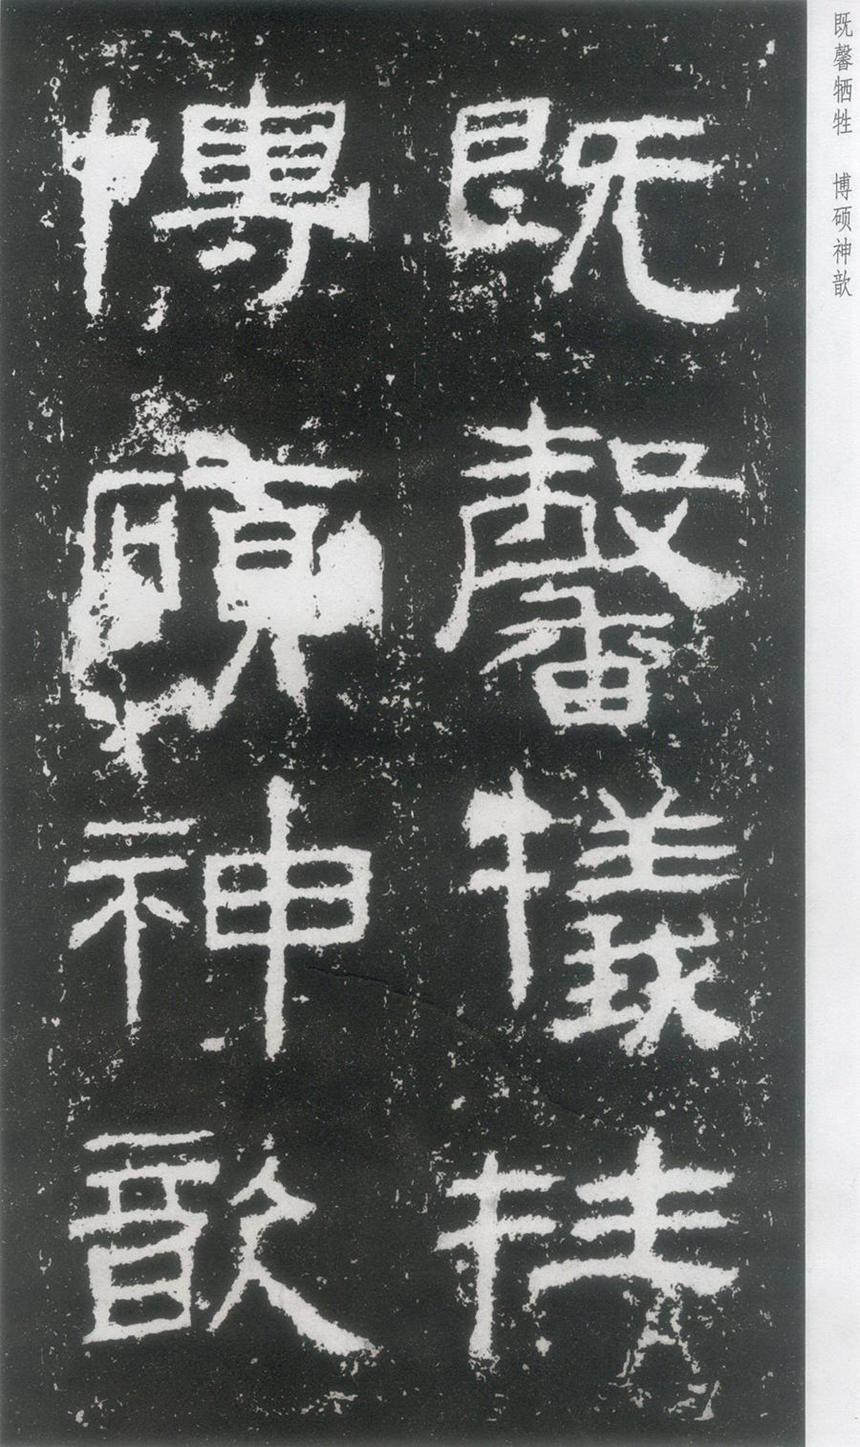 既馨犧牲
博碩神歆
既馨牺牲 博硕神歆